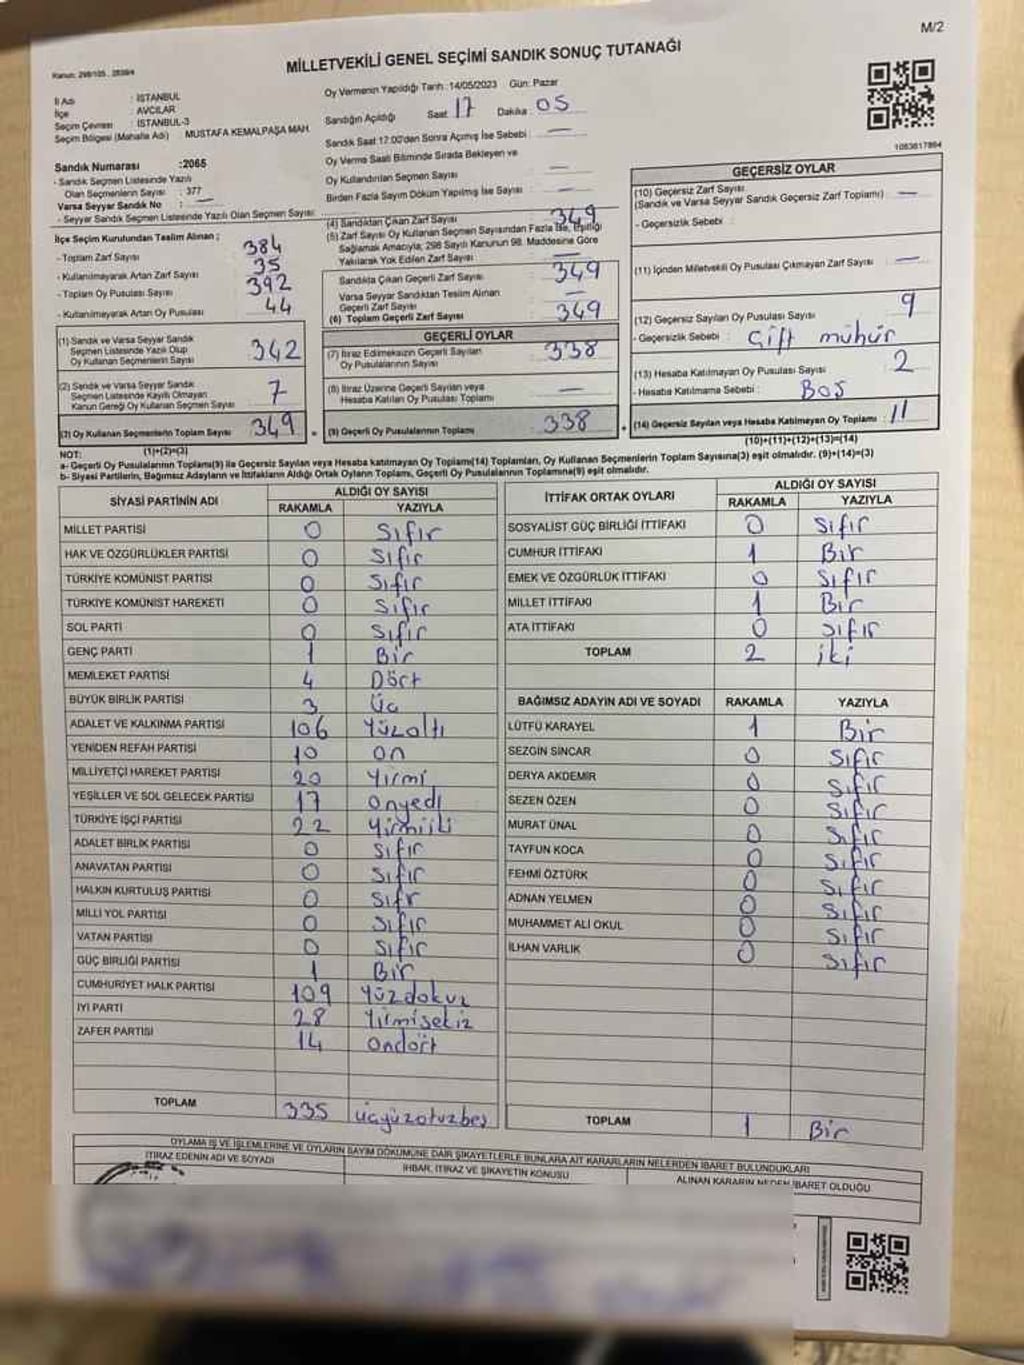 M/2
MİLLETVEKİLİ GENEL SEÇİMİ SANDIK SONUÇ TUTANAĞI
İl Adı : İSTANBUL
İlçe : AVCILAR
Seçim Çevresi : İSTANBUL-3
Seçim Bölgesi (Mahalle Adı) MUSTAFA KEMALPAŞA MAH.
Sandık Numarası :2065
- Sandık Seçmen Listesinde Yazılı
Olan Seçmenlerin Sayısı : 377
Varsa Seyyar Sandık No : —
- Seyyar Sandık Seçmen Listesinde Yazılı Olan Seçmen Sayısı:
Oy Vermenin Yapıldığı Tarih :14/05/2023 Gün: Pazar
Sandığın Açıldığı Saat 17 Dakika : 05
Sandık Saat 17:00'den Sonra Açılmış İse Sebebi : —
Oy Verme Saati Bitiminde Sırada Bekleyen ve
Oy Kullandırılan Seçmen Sayısı : —
Birden Fazla Sayım Döküm Yapılmış İse Sayısı : —
(4) Sandıktan Çıkan Zarf Sayısı : 349
(5) Zarf Sayısı Oy Kullanan Seçmen Sayısından Fazla İse, Eşitliği
Sağlamak Amacıyla; 298 Sayılı Kanunun 98. Maddesine Göre
Yakılarak Yok Edilen Zarf Sayısı : —
1083617864
İlçe Seçim Kurulundan Teslim Alınan ;
- Toplam Zarf Sayısı : 384
- Kullanılmayarak Artan Zarf Sayısı : 35
- Toplam Oy Pusulası Sayısı : 392
- Kullanılmayarak Artan Oy Pusulası : 44
(1) Sandık ve Varsa Seyyar Sandık
Seçmen Listesinde Yazılı Olup
Oy Kullanan Seçmenlerin Sayısı : 342
(2) Sandık ve Varsa Seyyar Sandık
Seçmen Listesinde Kayıtlı Olmayan
Kanun Gereği Oy Kullanan Seçmen Sayısı : 7
(3) Oy Kullanan Seçmenlerin Toplam Sayısı : 349
(1)+(2)=(3)
Sandıkta Çıkan Geçerli Zarf Sayısı : 349
Varsa Seyyar Sandıktan Teslim Alınan
Geçerli Zarf Sayısı : —
(6) Toplam Geçerli Zarf Sayısı : 349
GEÇERLİ OYLAR
(7) İtiraz Edilmeksizin Geçerli Sayılan
Oy Pusulasının Sayısı : 338
(8) İtiraz Üzerine Geçerli Sayılan veya
Hesaba Katılan Oy Pusulası Toplamı : —
= (9) Geçerli Oy Pusulalarının Toplamı : 338
GEÇERSİZ OYLAR
(10) Geçersiz Zarf Sayısı
(Sandık ve Varsa Seyyar Sandık Geçersiz Zarf Toplamı) : —
- Geçersizlik Sebebi :
(11) İçinden Milletvekili Oy Pusulası Çıkmayan Zarf Sayısı : —
(12) Geçersiz Sayılan Oy Pusulası Sayısı : 9
- Geçersizlik Sebebi : Çift mühür
(13) Hesaba Katılmayan Oy Pusulası Sayısı : 2
- Hesaba Katılmama Sebebi : Boş
+ (14) Geçersiz Sayılan veya Hesaba Katılmayan Oy Toplamı : 11
(10)+(11)+(12)+(13)=(14)
NOT:
a- Geçerli Oy Pusulalarının Toplamı(9) ile Geçersiz Sayılan veya Hesaba katılmayan Oy Toplamı(14) Toplamları, Oy Kullanan Seçmenlerin Toplam Sayısına(3) eşit olmalıdır. (9)+(14)=(3)
b- Siyasi Partilerin, Bağımsız Adayların ve İttifakların Aldığı Ortak Oyların Toplamı, Geçerli Oy Pusulalarının Toplamına(9) eşit olmalıdır.
SİYASİ PARTİNİN ADI ALDIĞI OY SAYISI
RAKAMLA YAZIYLA
MİLLET PARTİSİ 0 Sıfır
HAK VE ÖZGÜRLÜKLER PARTİSİ 0 Sıfır
TÜRKİYE KOMÜNİST PARTİSİ 0 Sıfır
TÜRKİYE KOMÜNİST HAREKETİ 0 Sıfır
SOL PARTİ 0 Sıfır
GENÇ PARTİ 1 Bir
MEMLEKET PARTİSİ 4 Dört
BÜYÜK BİRLİK PARTİSİ 3 Üç
ADALET VE KALKINMA PARTİSİ 106 Yüzaltı
YENİDEN REFAH PARTİSİ 10 on
MİLLİYETÇİ HAREKET PARTİSİ 20 Yirmi
YEŞİLLER VE SOL GELECEK PARTİSİ 17 onyedi
TÜRKİYE İŞÇİ PARTİSİ 22 Yirmiiki
ADALET BİRLİK PARTİSİ 0 Sıfır
ANAVATAN PARTİSİ 0 Sıfır
HALKIN KURTULUŞ PARTİSİ 0 Sıfr
MİLLİ YOL PARTİSİ 0 Sıfır
VATAN PARTİSİ 0 Sıfır
GÜÇ BİRLİĞİ PARTİSİ 1 Bir
CUMHURİYET HALK PARTİSİ 109 Yüzdokuz
İYİ PARTİ 28 Yirmisekiz
ZAFER PARTİSİ 14 Ondört
TOPLAM 335 üçyüzotuzbeş
İTTİFAK ORTAK OYLARI ALDIĞI OY SAYISI
RAKAMLA YAZIYLA
SOSYALİST GÜÇ BİRLİĞİ İTTİFAKI 0 Sıfır
CUMHUR İTTİFAKI 1 Bir
EMEK VE ÖZGÜRLÜK İTTİFAKI 0 Sıfır
MİLLET İTTİFAKI 1 Bir
ATA İTTİFAKI 0 Sıfır
TOPLAM 2 iki
BAĞIMSIZ ADAYIN ADI VE SOYADI RAKAMLA YAZIYLA
LÜTFÜ KARAYEL 1 Bir
SEZGİN SİNCAR 0 Sıfır
DERYA AKDEMİR 0 Sıfır
SEZEN ÖZEN 0 Sıfır
MURAT ÜNAL 0 Sıfır
TAYFUN KOCA 0 Sıfır
FEHMİ ÖZTÜRK 0 Sıfır
ADNAN YELMEN 0 Sıfır
MUHAMMET ALİ OKUL 0 Sıfır
İLHAN VARLIK 0 Sıfır
TOPLAM 1 Bir
OYLAMA İŞ VE İŞLEMLERİNE VE OYLARIN SAYIM DÖKÜMÜNE DAİR ŞİKAYETLERLE BUNLARA AİT KARARLARIN NELERDEN İBARET BULUNDUKLARI
İTİRAZ EDENİN ADI VE SOYADI İHBAR, İTİRAZ VE ŞİKAYETİN KONUSU ALINAN KARARIN NEDEN İBARET OLDUĞU